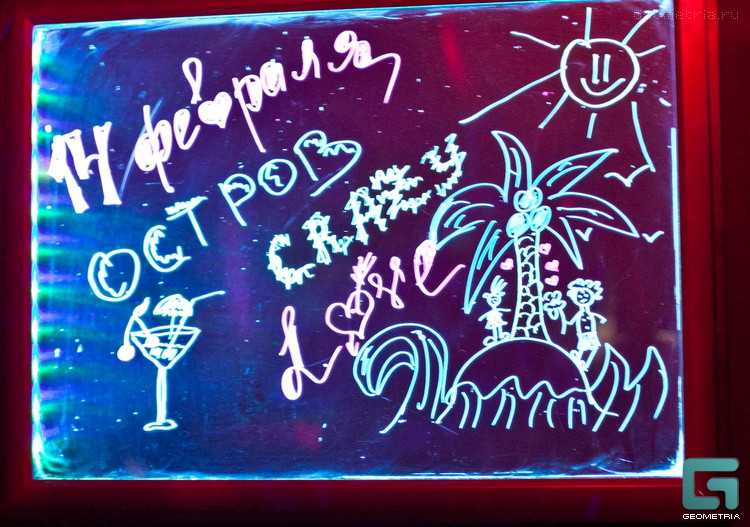 geometria.ru
14 февраля
ОСТРОВ
CRAZY
Love
GEOMETRIA